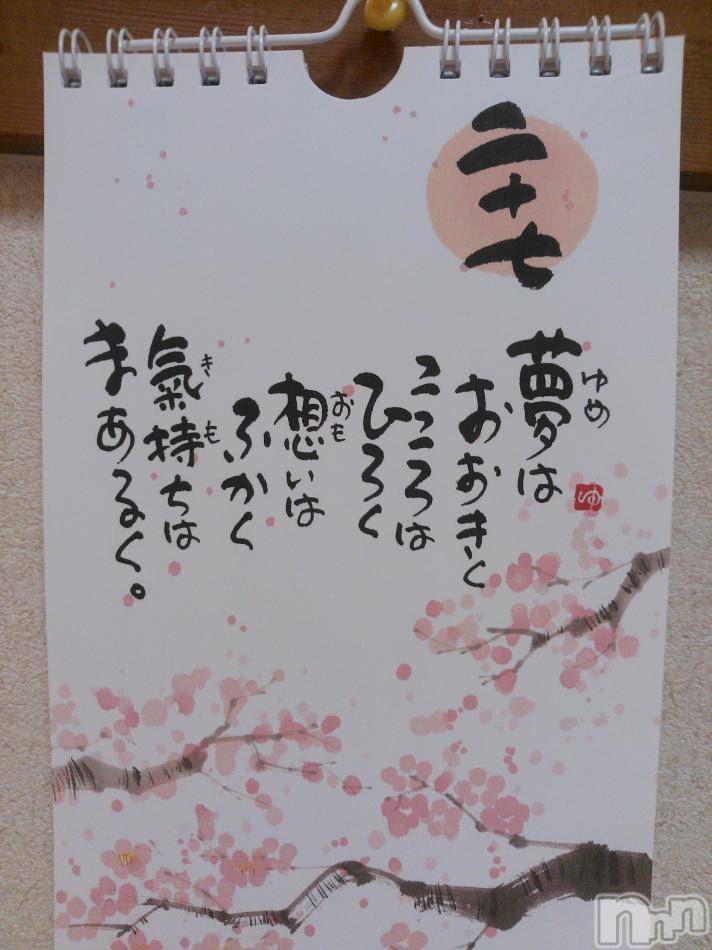 二十七
夢は
ゆめ
おおきく
こころは
ひろく
想いは
おも
ふかく
氣持ちは
き も
まあるく。
ゆ
nnn